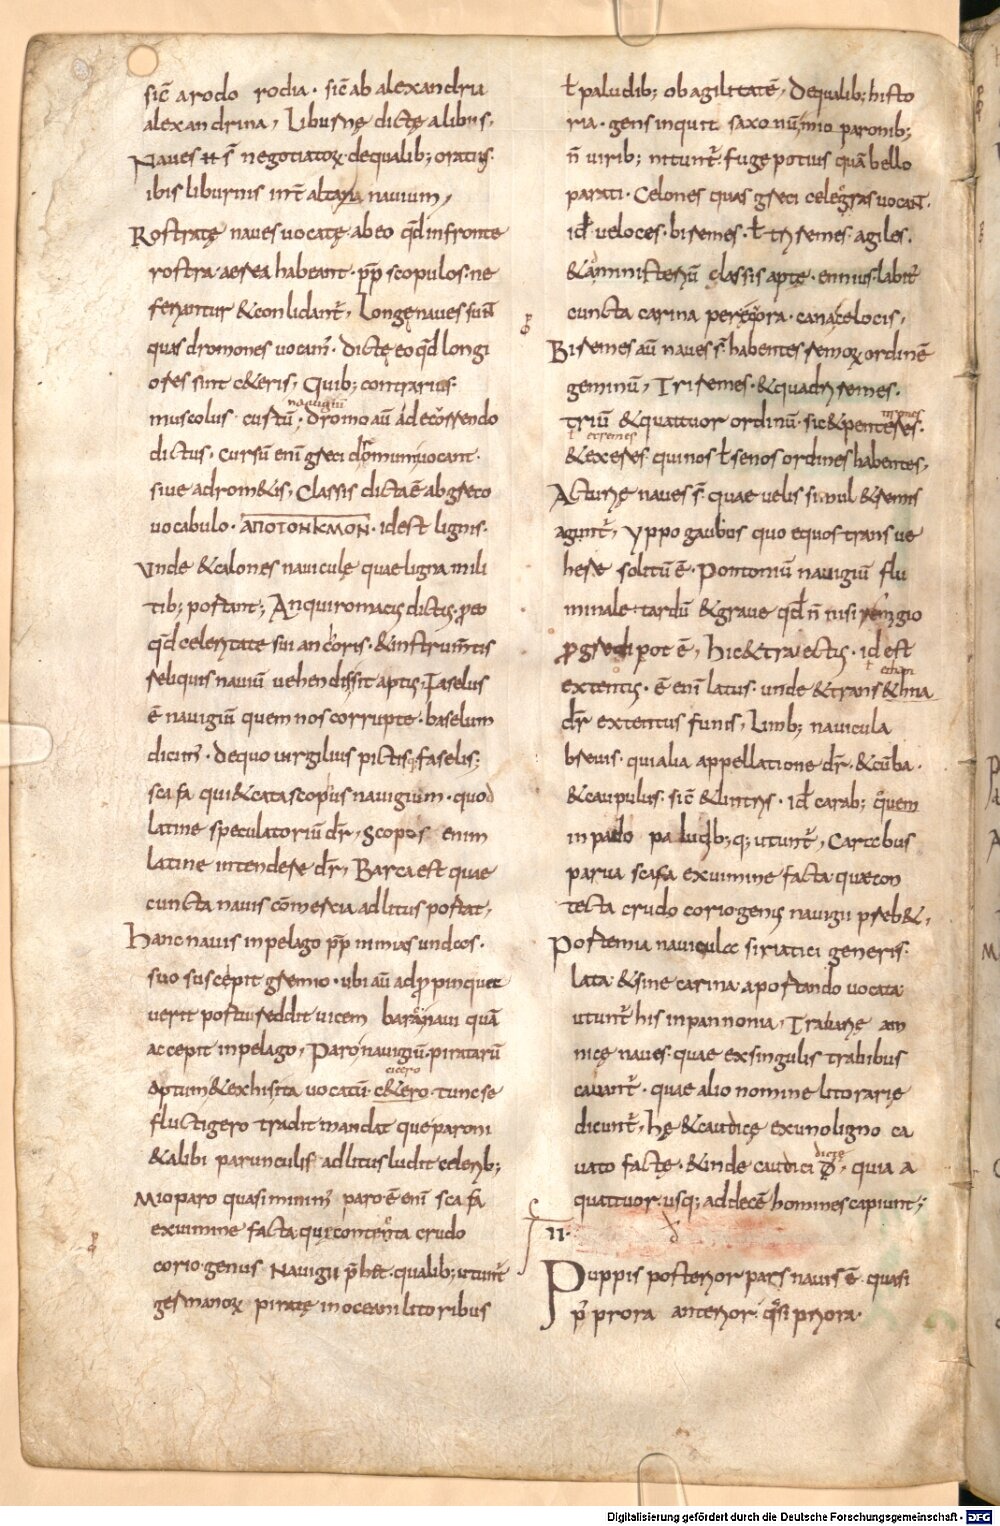 sic̄ arodo rodia · sic̄ ab alexandria
alexandrina, Liburnę dictę alibiis,
Naues ·n̄ s̄ negotiatoꝝ· dequalib; oratius·
ibis liburnis int̄ alta navium,
Rostratę naues uocatę· abeo qđ infronte
rostra aerea habeant· pp̄ scopulos· ne
feriantur & conlidant̄, Longę naues sunt̄
quas dromones uocam̄· dictę eo qđ longi
ores sint ceteris, Quib; contrarius·
musculus· curtū nauigiū; dromo aū adecurrendo
dictus· cursū enī greci dromum uocant·
siue adrom&is, Classis dicta ē abgreco
uocabulo· ΑΠΟΤΟΝΚΑΛΟΝ· idest lignis·
Vnde & calones nauiculę quae ligna mili
tib; portant; Anquiromacis dictis· pro eo
qđ celeritate sui ancoris· & instrum̄tis
reliquis nauiū uehendis sit aptis, Faselus
ē nauigiū quem nos corrupte· baselum
dicim̄· dequo uirgilius pictis· faselis;
scafa qui & catascopus nauigium· quod
latine speculatoriū dr̄, scopos enim
latine intendere dr̄, Barca est quae
cuncta nauis cōmercia adlitus portat,
Hanc nauis inpelago pp̄ nimias undas·
suo suscepit gremio· ubi aū adpropinqua
uerit portu· reddit uicem barca naui quā
accepit inpelago, Paro nauigiū· piratarū
aptum & exhisita uocatū· c&ero cicero· tuncse
fluctigero tradit mandat que paroni
& alibi parunculis adlitus ludit celerib;
Mioparo quasi minim̄ paro ē enī scafa
exuimine facta qui contexta crudo
corio genus· Nauigii p̄b&· qualib; utunt̄
germanoꝝ piratę inoceani litoribus
ł paludib; obagilitatē, Dequalib; histo
ria· gens inquit saxonū, mio paronib;
n̄ uirib; nitunt̄· fuge potius quā bello
parati· Celones quas greci celegras uocant̄·
id· ueloces· biremes· ł triremes· agiles·
& amministeriū classis aptę· ennius· labit̄
cuncta carina pereqora· canacelocis,
Biremes aū naues s̄ habentes remoꝝ ordinē
geminū, Triremes· & quadriremes·
triū & quattuor ordinū· sic & penteres·
& exeres ł exremes quinos ł senos ordines habentes,
Acturię naues s̄· quae uelis simul & remis
agunt̄, Yppogaubus quo equos trans ue
here solitū ē· Pontoniū nauigiū flu
minale· tardū & graue qđ n̄ nisi remigio
progredi pot ē, hic & traiectis· id est
extentis· ē enī latus· unde & trans&hna
dr̄ extentus funis, Limb; nauicula
breuis· quialia appellatione dr̄· & cūba·
& caupulus· sic̄ & lintris· id carab; quem
inpado paludib; q; utunt̄, Carabus
parua scafa exuimine facta· quae con
tecta crudo corio genus nauigii preb&,
Postemia nauiculae sixiatici generis·
lata & sine carina aportando uocata
utunt̄ his inpannonia, Trabarię am
nicę naues· quae exsingulis trabibus
cauant̄· quae alio nomine litorarię
dicunt̄, hę & caudicę exunoligno ca
uato factę· & inde caudici dictę, quia a
quattuor· usq; addecē homines capiunt;
II·
Puppis posterior pars nauis ē· quasi
p̄ prora anterior· qͣsi priora·
Digitalisierung gefördert durch die Deutsche Forschungsgemeinschaft - DFG